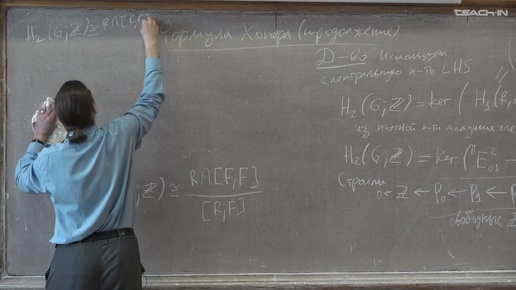 TEACH-IN
H₂(G,ℤ)≅R∩[F,F] Формула Хопфа (продолжение)
Д-во Используем
спектральную п-ть LHS
H₂(G,ℤ) = ker ( H₁(R,
из точной п-ти младших чле
H₂(G,ℤ) = ker (
Строили
0 ← ℤ ← P₀ ← P₁ ←
свободные ℤ
,ℤ) ≅ R∩[F,F] / [R,F]